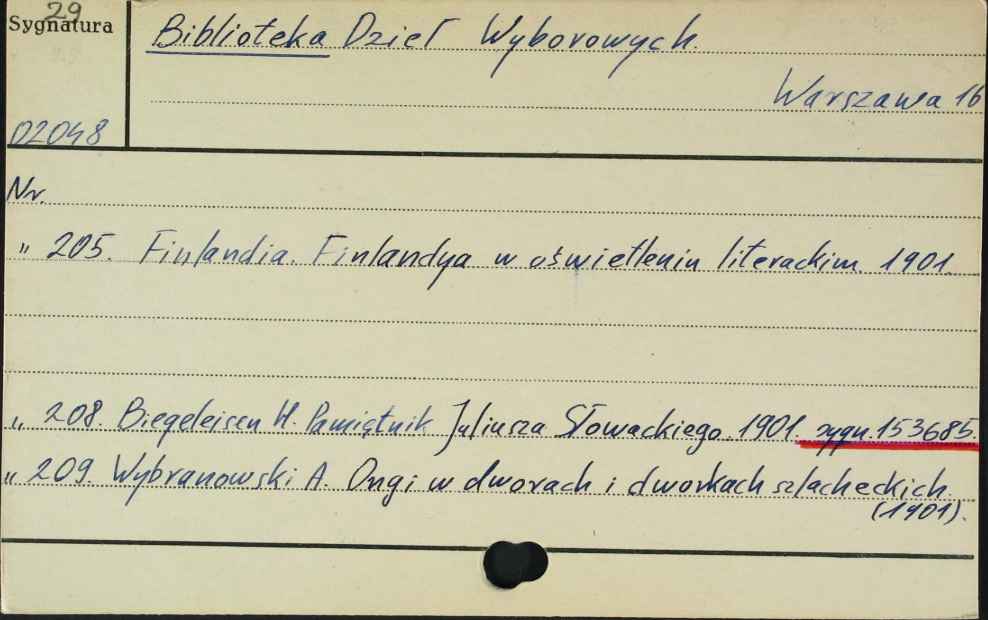 29
Sygnatura
Biblioteka Dzieł Wyborowych.
Warszawa 16
02048
Nr.
" 205. Finlandia. Finlandya w oświetleniu literackim. 1901.
" 208. Biegeleisen H. Pamiętnik Juliusza Słowackiego 1901. sygn. 153685.
" 209. Wybranowski A. Ongi w dworach i dworkach szlacheckich
(1901).